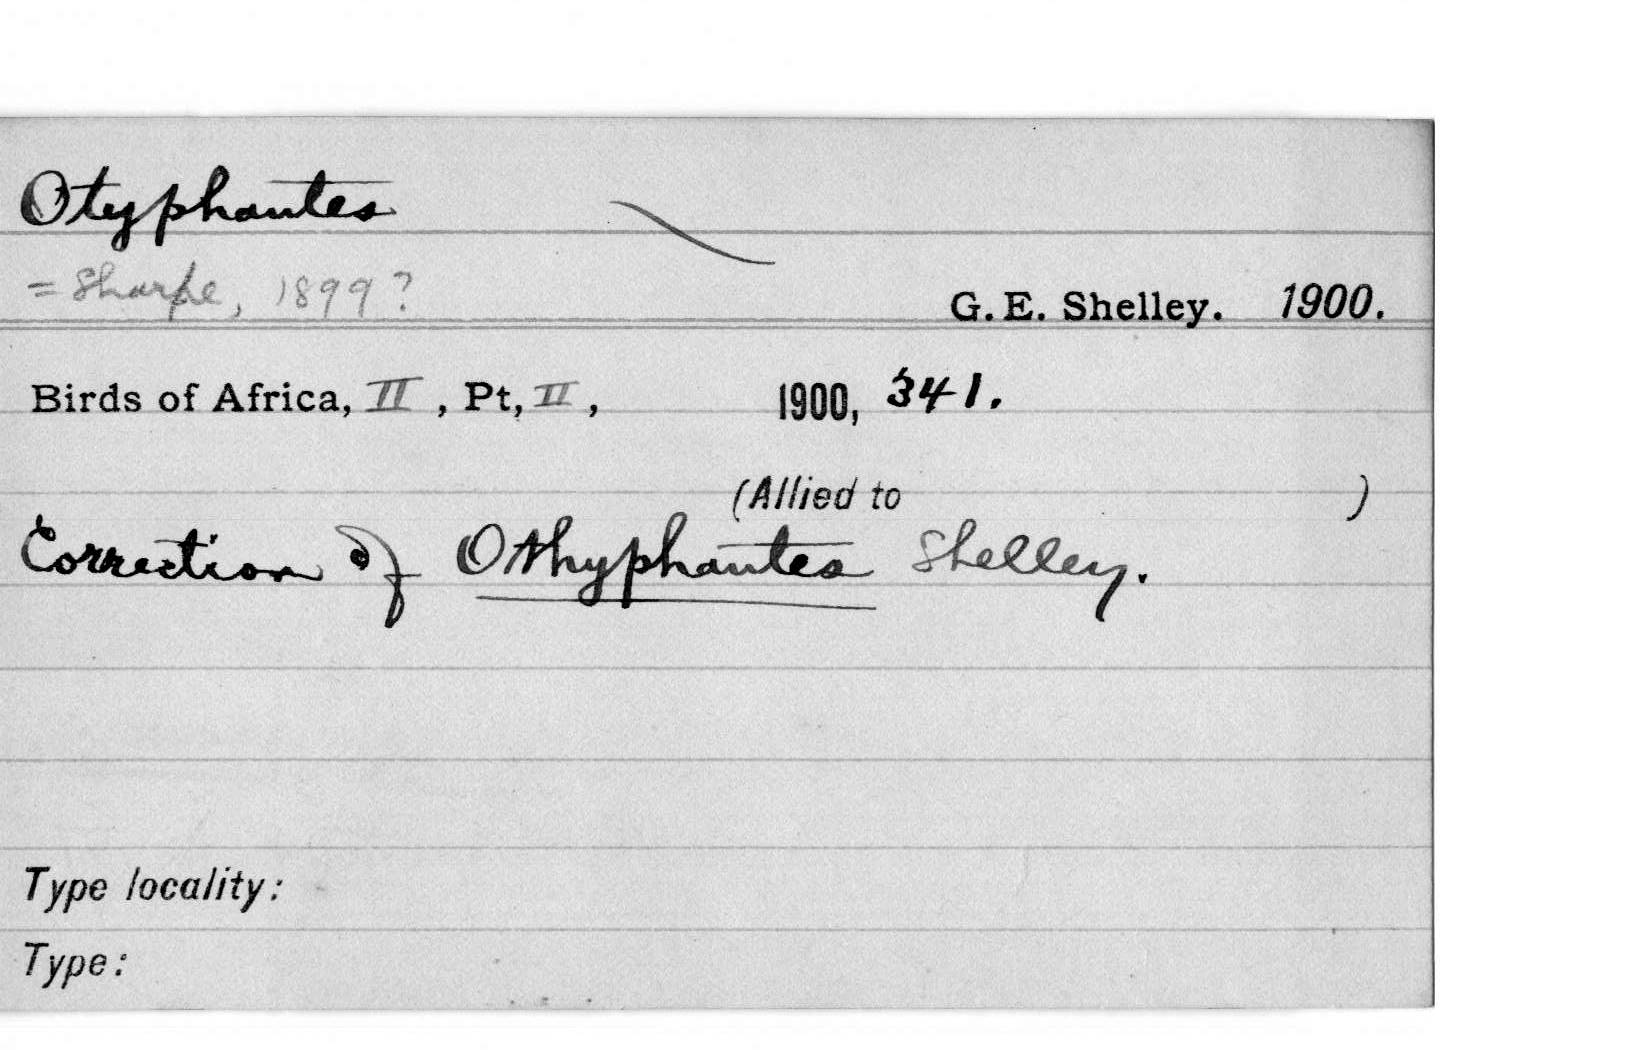 Otyphantes
= Sharpe, 1899?
G. E. Shelley. 1900.
Birds of Africa, II, Pt, II, 1900, 341.
(Allied to )
Correction of Othyphantes Shelley.
Type locality:
Type: